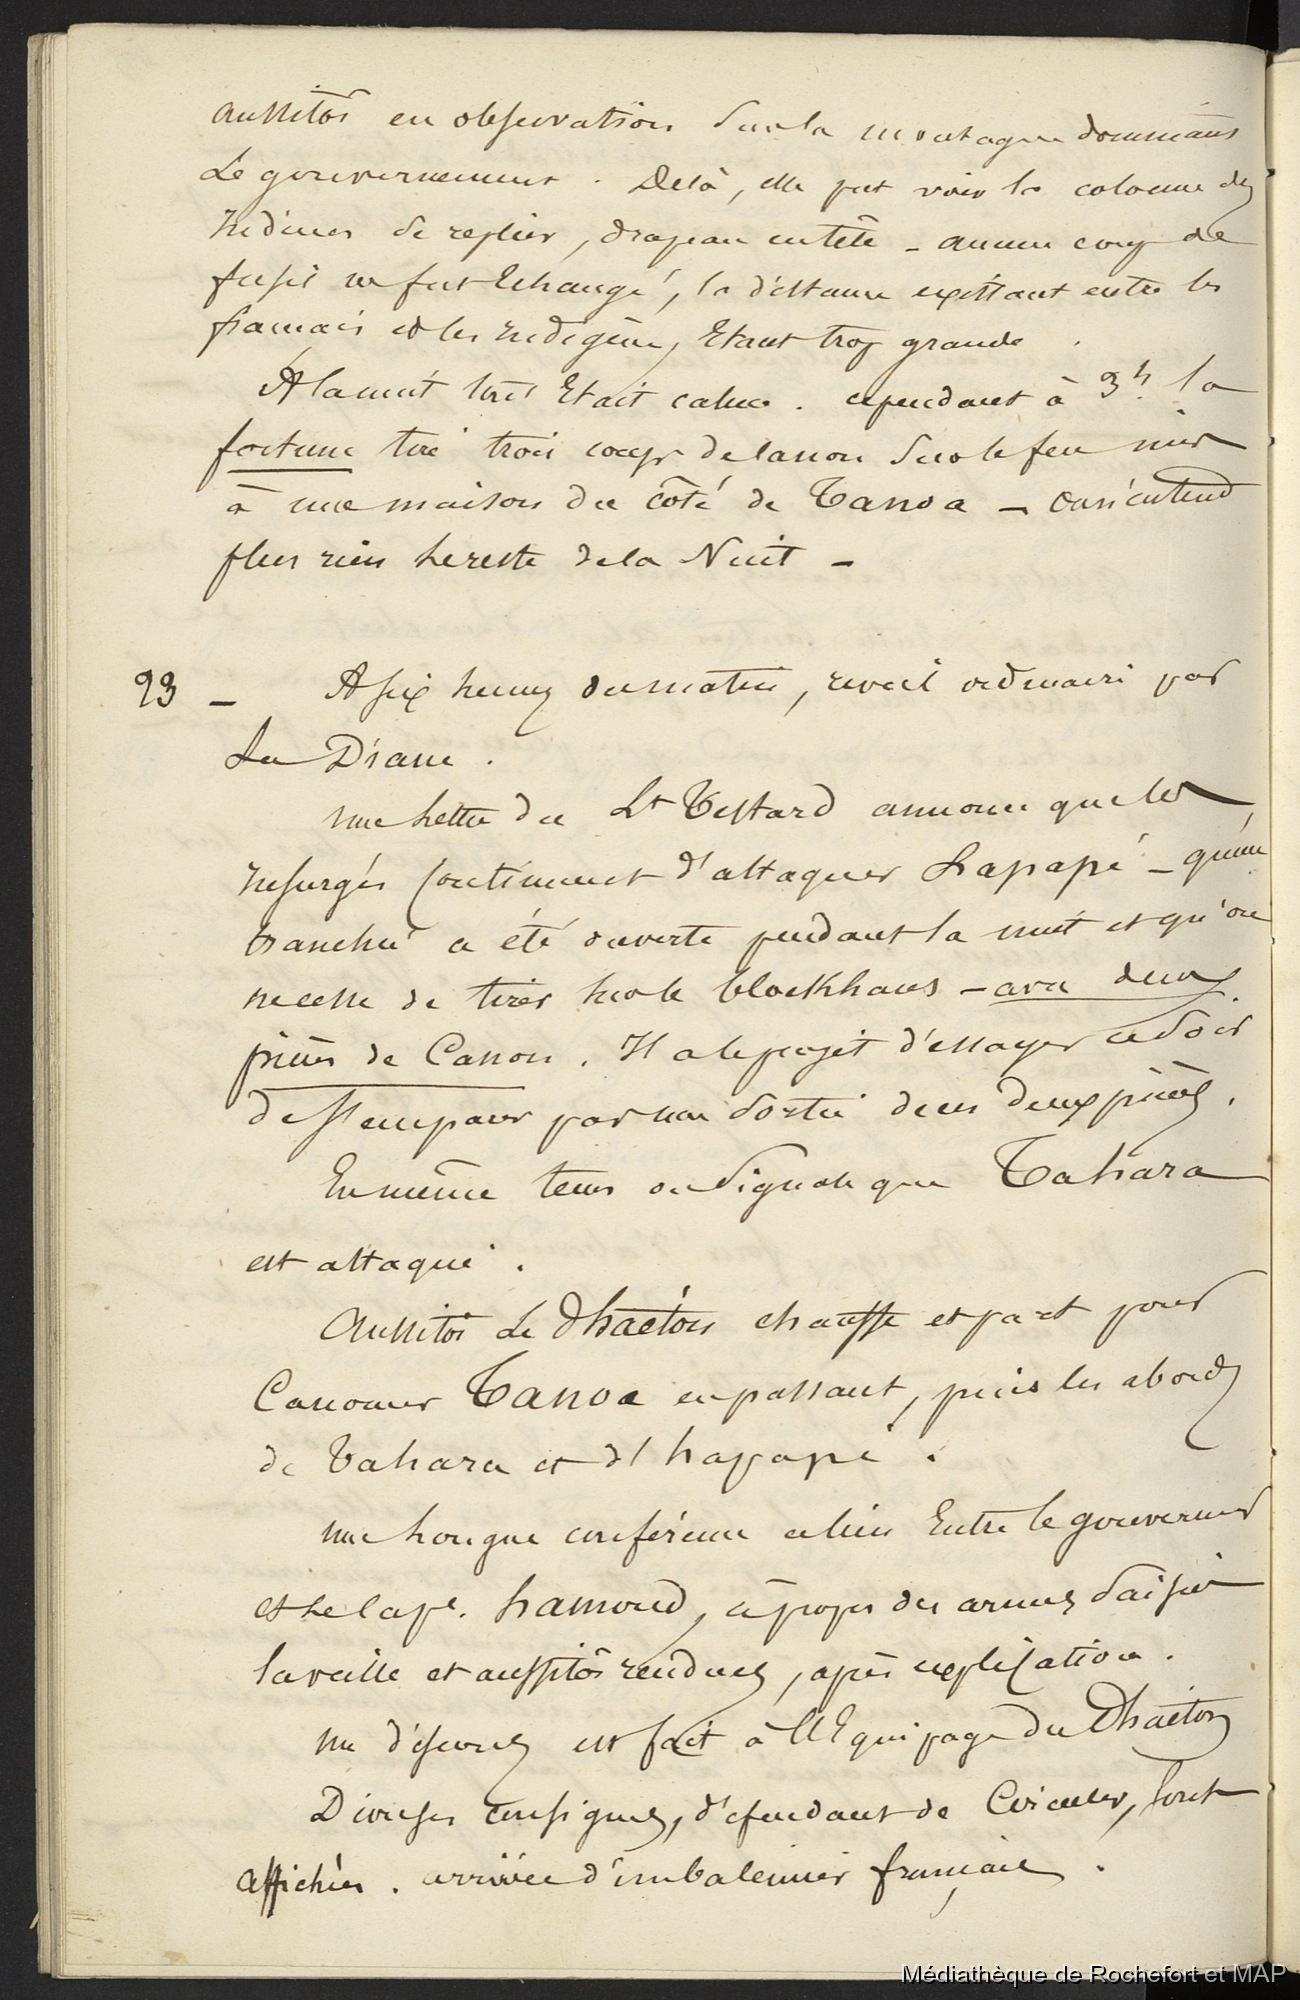 aussitôt en observation sur la montagne dominant
Le gouvernement. Delà, elle put voir la colonne des
Indiens se replier, drapeau en tête _ aucun coup de
fusil ne fut Echangé, la distance existant entre les
français et les Indigènes, Etant trop grande.
À la nuit tout Etait calme. cependant à 3h. la
fortune tire trois coups de canon sur le feu mis
à une maison du côté de Tanoa _ on n'entend
plus rien le reste de la Nuit _
23 _ A six heures du matin, reveil ordinaire par
La Diane.
Une lettre du Lt Testard annonce que les
Insurgés continuent d'attaquer hapapé _ qu'une
tranchée a été ouverte pendant la nuit et qu'on
ne cesse de tirer sur le blockhaus _ avec deux
pièces de Canon. Il a le projet d'essayer ce soir
de s'emparer par une sortie de ces deux pièces.
En même tems on signale que Tahara
est attaqué.
Aussitôt Le Phaéton chauffe et part pour
Canonner Tanoa en passant, puis les abords
de Tahara et d'hapapé.
Une longue conférence a lieu Entre le gouverneur
et le cape. hamond, à propos des armes saisies
la veille et aussitôt rendues, après explication.
Un discours est fait à l'Equipage du Phaéton
Diverses consignes, défendant de Circuler, sont
affichées. arrivée d'un baleinier français.
Médiathèque de Rochefort et MAP